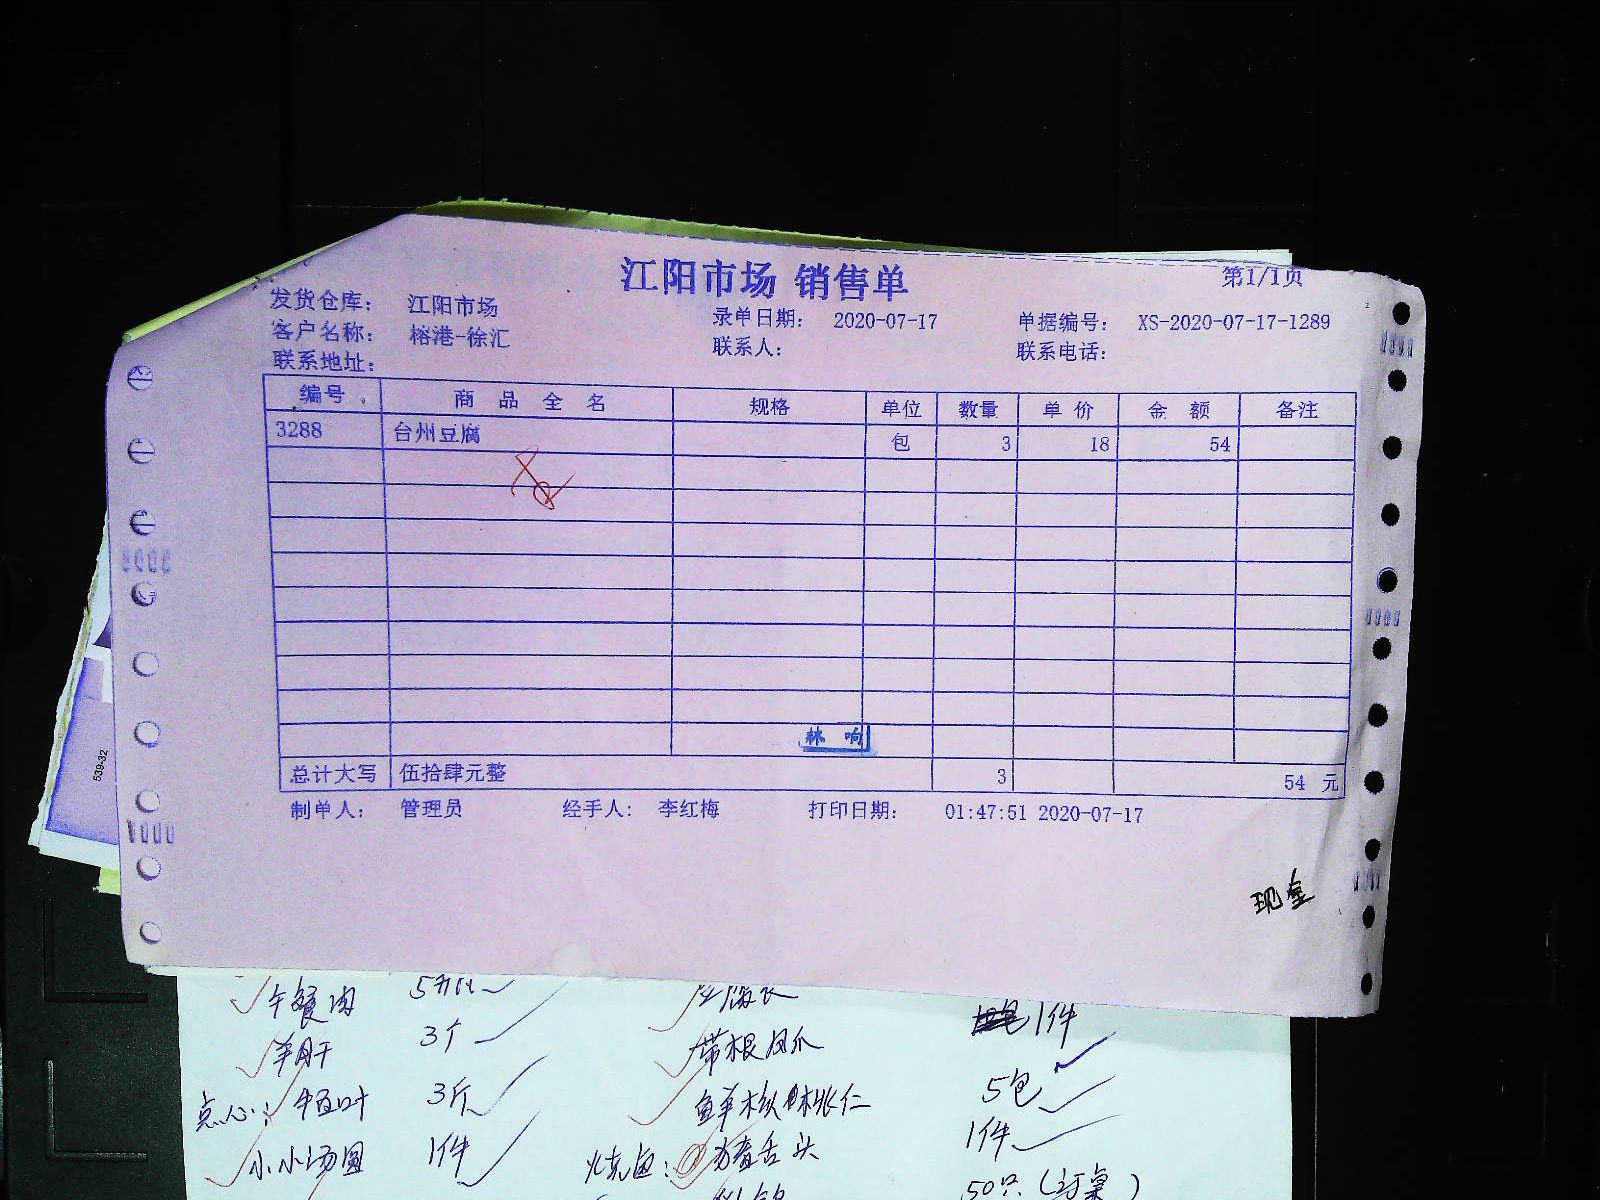 江阳市场 销售单
第1/1页
发货仓库： 江阳市场 录单日期： 2020-07-17 单据编号： XS-2020-07-17-1289
客户名称： 榕港-徐汇 联系人： 联系电话：
联系地址：
编号 商品全名 规格 单位 数量 单价 金额 备注
3288 台州豆腐 包 3 18 54
林响
总计大写 伍拾肆元整 3 54 元
制单人： 管理员 经手人： 李红梅 打印日期： 01:47:51 2020-07-17
539-32
午餐肉
1件
羊肝 3个 带根凤爪 5包
点心： 3斤 1件
小小汤圆 1件 50只